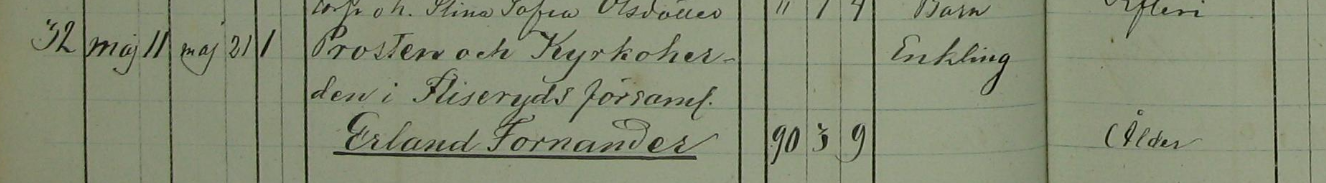 Stina Sofia Olsdotter " 1 4 Barn
32 maj 11 maj 21 1 Prosten och Kyrkoher- Enkling
den i Fliseryds församl.
Erland Fornander 90 3 9 Ålder